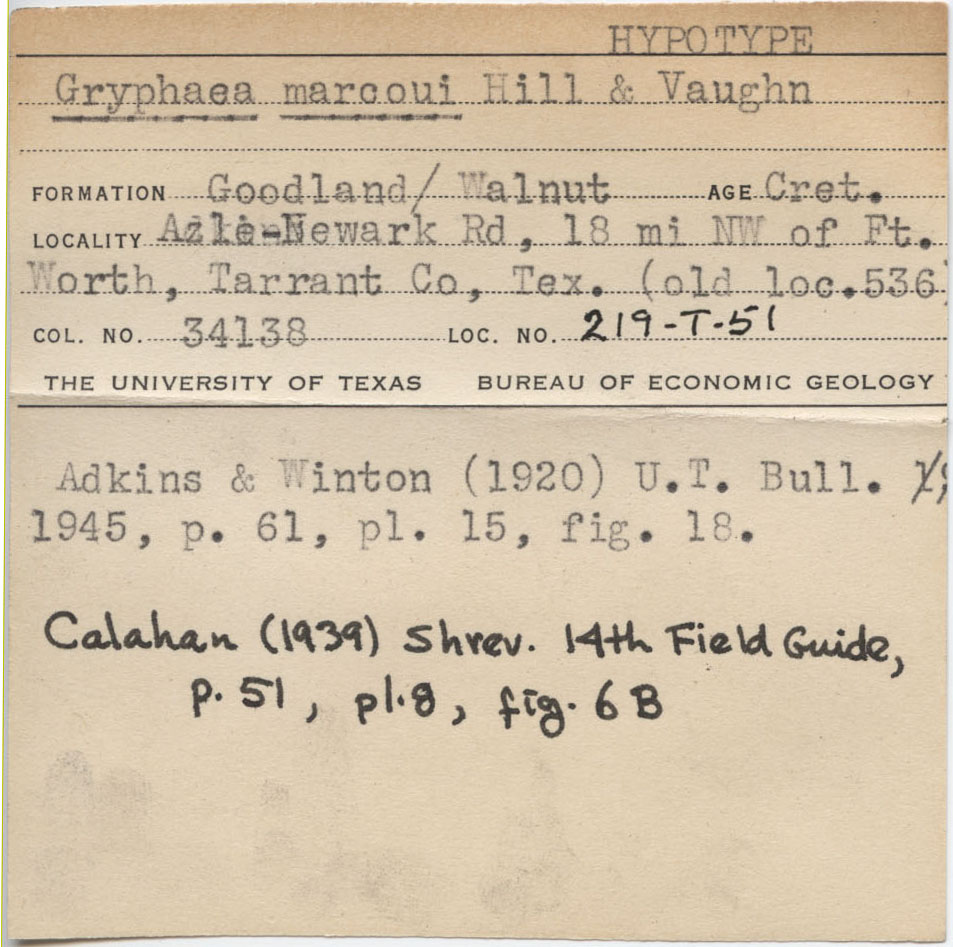 HYPOTYPE
Gryphaea marcoui Hill & Vaughn
FORMATION Goodland/ Walnut AGE Cret.
LOCALITY Azle-Newark Rd, 18 mi NW of Ft.
Worth, Tarrant Co, Tex. (old loc.536)
COL. NO. 34138 LOC. NO. 219-T-51
THE UNIVERSITY OF TEXAS BUREAU OF ECONOMIC GEOLOGY
Adkins & Winton (1920) U.T. Bull.
1945, p. 61, pl. 15, fig. 18.
Calahan (1939) Shrev. 14th Field Guide,
p. 51, pl. 8, fig. 6 B